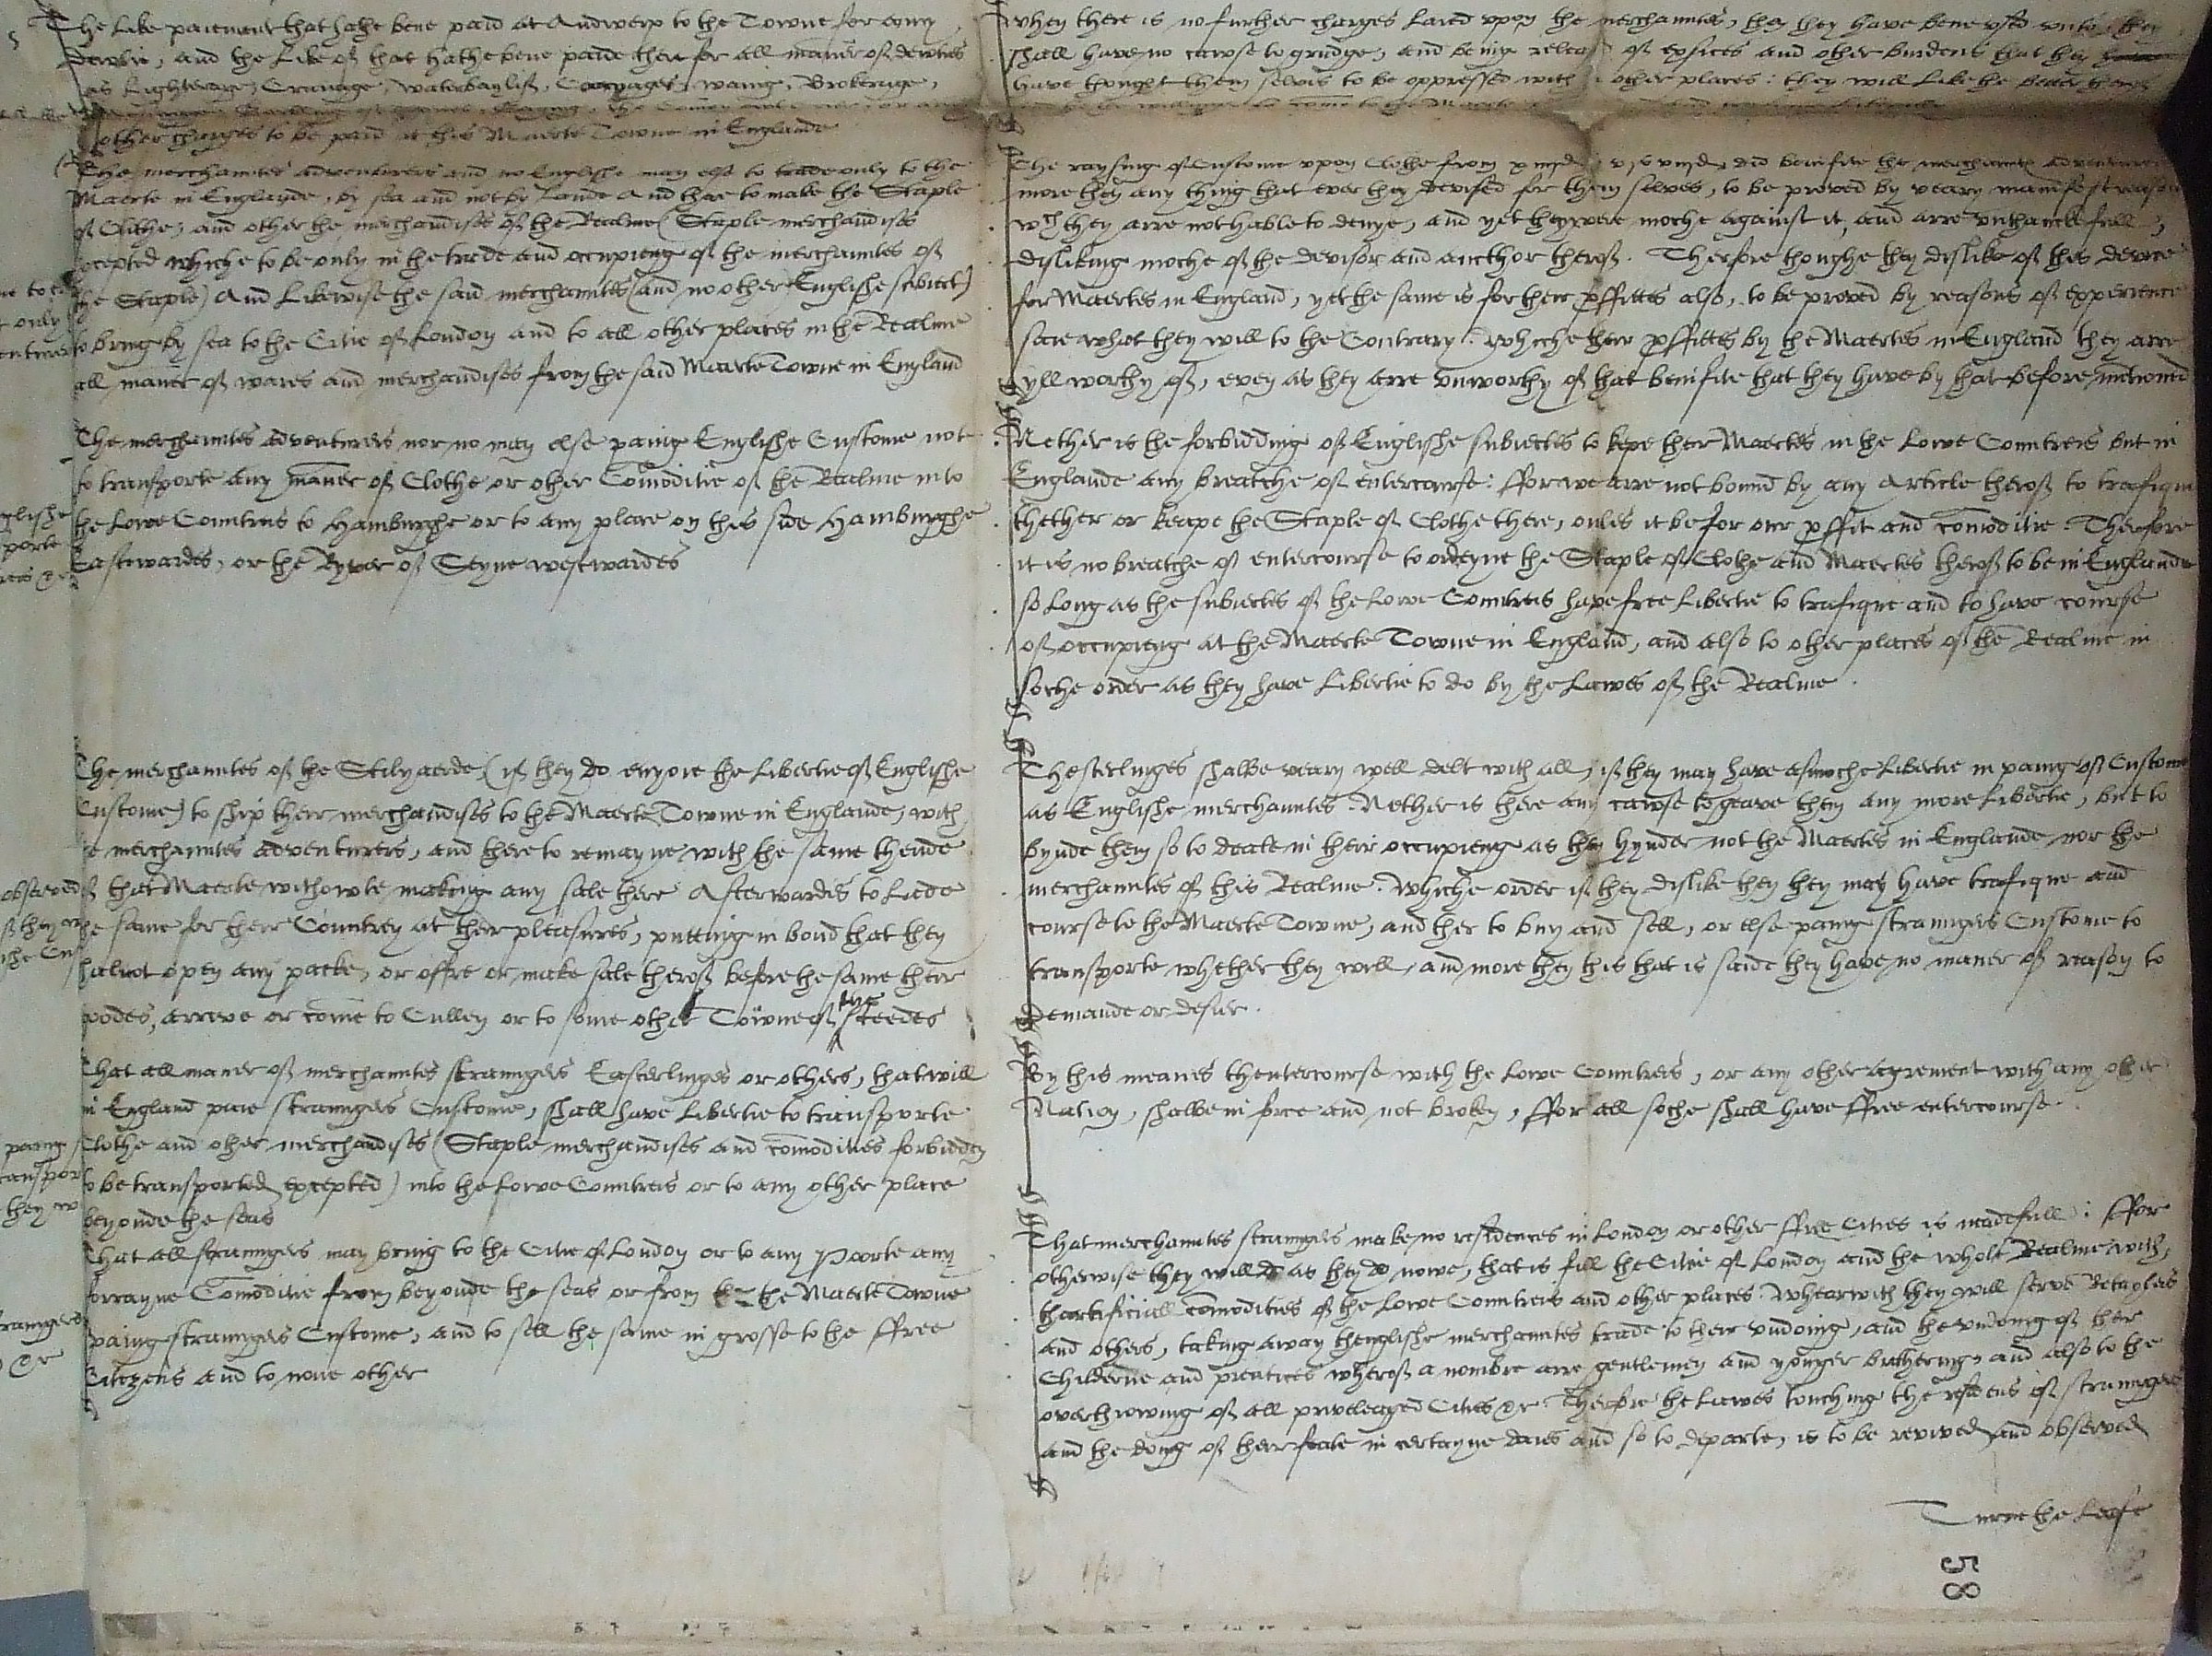 The like paiement that hathe bene paid at Andwerp to the Towne for any
dewtie, and the like of that hathe bene paide ther for all maner of dewties
as Lighterage, Cranage, waterbaylif, Cariages, waing, Brokerage,
other charges to be paid at this Maerte Towne in Englande
The merchauntes adventurers and no Englishe man els to trade only to the
Maerte in Englande, by sea and not by Lande And thar to make the Staple
of Clothe, and other the merchandises of the Realme (Staple merchandises
excepted whiche to be only in the trede and occupieng of the merchauntes of
the Staple) And Likewise the said merchauntes (and no other Englishe subiect)
to bring by sea to the Citie of London and to all other places in the Realme
all maner of wares and merchandises from the said Maerte Towne in England
The merchauntes adventurers nor no man else paing Englishe Custome not
to transporte any maner of Clothe or other Comoditie of the Realme into
the Lowe Countreis to Hamburghe or to any place on this side Hamburghe
Eastwardes, or the Ryver of Seyne westwardes
The merchauntes of the Stilyaerde (if they do enyoie the Libertie of Englishe
Custome) to ship their merchandises to the Maerte Towne in Englande, with
the merchauntes adventurers, and there to remayne with the same thende
of that Maerte withowte making any sale there Afterwardes to Lede
the same for their Countrey at their pleasures, putting in bond that they
shalnot open any packe, or offre or make sale therof before the same their
goodes, arreve or come to Cullen or to some other Towne of the steedes
That all maner of merchauntes straungers Easterlinges or others, that will
in England paie straungers Custome, shall have Libertie to transporte
Clothe and other merchandises (Staple merchandises and comodities forbidden
to be transported excepted) into the Lowe Countreis or to any other place
beyonde the seas
That all straungers may bring to the Citie of London or to any Poorte any
forrayne Comoditie from beyonde the seas or from the Maerte Towne
paing straungers Custome, and to sell the same in grosse to the ffree
Citezens and to none other
when there is no further charges Laied vpon the merchauntes, then they have bene vsed vnto, they
shall have no cawse to grudge, and being releasd of exsises and other burdens that they
have thought them selves to be oppressed with in other places: they will Like the better therof
The raysing of Custome vpon Clothe from xiiijd to vjs viijd, did benifite the merchauntes adventurers
more then any thing that ever they devised for them selves, to be proved by veary manifest reason
wch they arre not hable to denye, and yet they were moche against it, and arre vnthanckfull,
disliking moche of the devisor and aucthor therof. Therfore thoughe they dislike of this device
for Maertes in England, yet the same is for their pffittes also, to be proved by reasons of experience
saie what they will to the Contrary. Whiche their pffittes by the Maertes in England they arre
yll worthy of, even as they arre vnworthy of that benifite that they have by that before mencioned
Nether is the forbidding of Englishe subiectes to kepe ther Maertes in the Lowe Countreis but in
Englande any breatche of entercourse: ffor we arre not bound by any Article therof to trafique
thether or keape the Staple of Clothe there, onles it be for our pffit and comoditie. Therfore
it is no breatche of entercourse to ordeyne the Staple of Clothe and Maertes therof to be in Englande
so long as the subiectes of the Lowe Countreis have free Libertie to trafique and to have course
of occupieng at the Maerte Towne in England, and also to other places of the Realme in
soche order as they have Libertie to do by the Lawes of the Realme.
Thesterlinges shalbe veary well delt with all, if they may have asmoche Libertie in paing of Custome
as Englishe merchauntes. Nether is there any cawse to geave them any more Libertie, but to
bynde them so to deale in their occupieng as they hynder not the Maertes in Englande nor the
merchauntes of this Realme. Whiche order if they dislike then they may have trafique and
course to the Maerte Towne, and ther to buy and sell, or else paing straungers Custome to
transporte whether they will, and more then this that is saide they have no maner of reason to
demaunde or desier.
By this meanes thentercourse with the Lowe Countreis, or any other agrement with any other
Nation, shalbe in force and not broken, ffor all soche shall have ffree entercourse.
That merchauntes straungers make no residences in London or other ffree Cities is nedefull: ffor
otherwise they will do as they do nowe, that is fill the Citie of London and the whole Realme with
thartificiall comodities of the Lowe Countreis and other places. Whearwith they will serve Retaylers
and others, taking away thenglishe merchauntes trade to their vndoing, and the vndoing of their
Childerne and prentices wherof a nombre arre gentlemen and yonger brethering, and also to the
overthrowing of all priveleaged Cities &c. Therfore the Lawes touching the residens of straungers
and the doing of their feate in certayne daies and so to departe, is to be revived and observed
Turne the Leafe
58